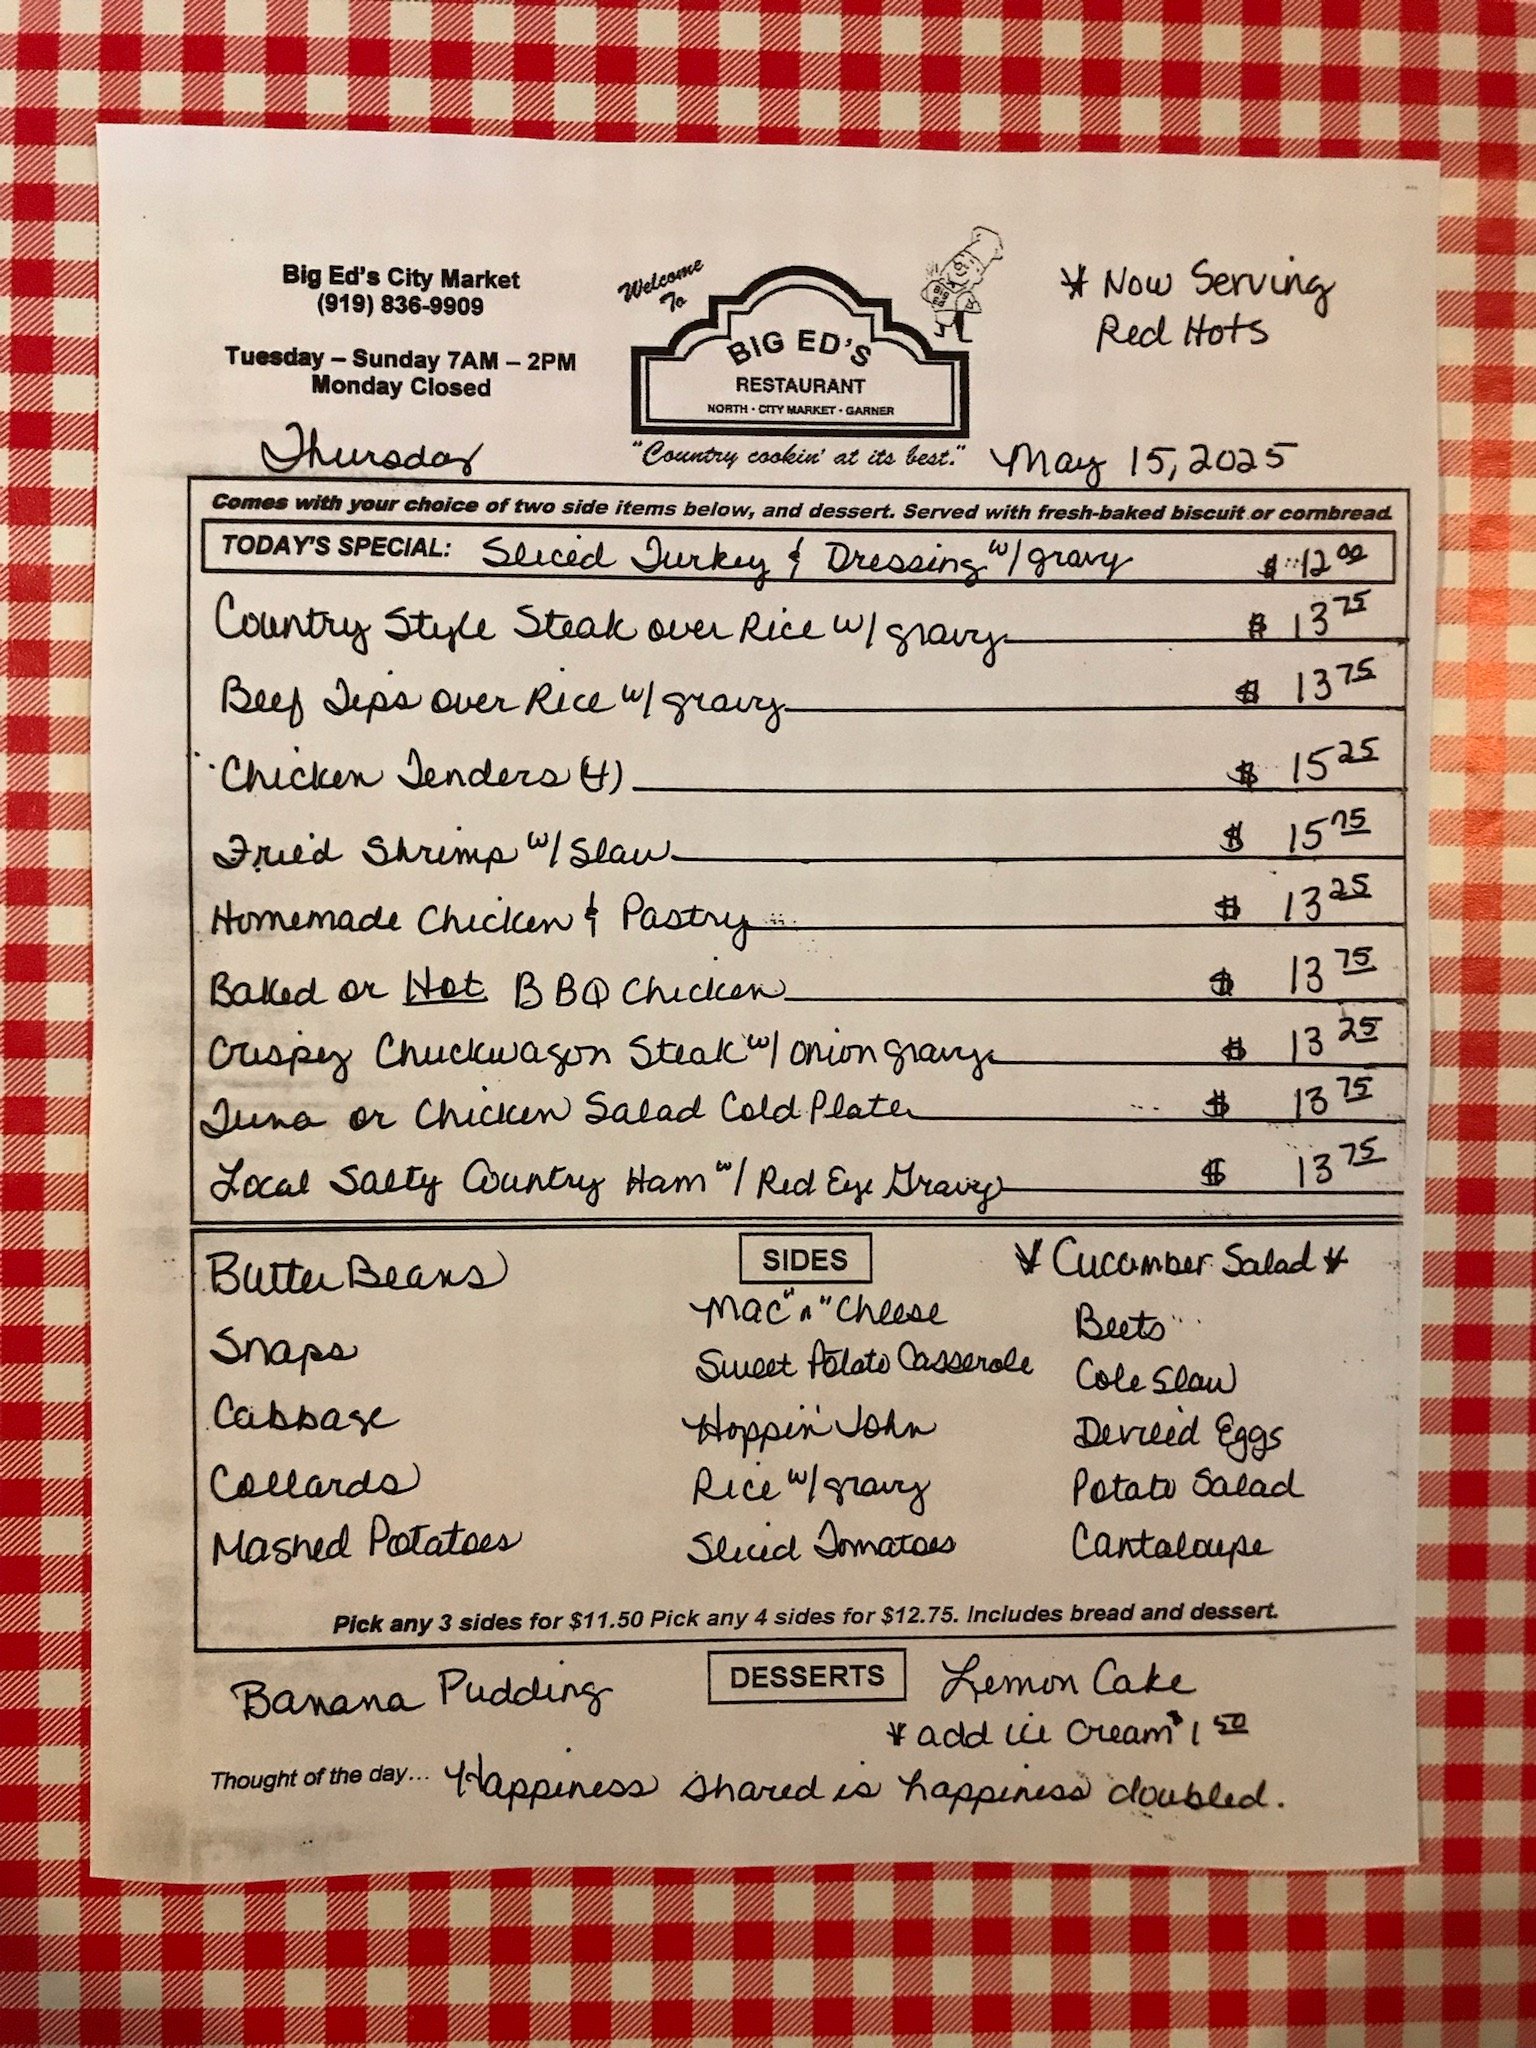 Big Ed's City Market
(919) 836-9909
Tuesday – Sunday 7AM – 2PM
Monday Closed
Thursday
Welcome
To
BIG ED'S
RESTAURANT
NORTH · CITY MARKET · GARNER
"Country cookin' at its best."
* Now Serving
Red Hots
May 15, 2025
Comes with your choice of two side items below, and dessert. Served with fresh-baked biscuit or cornbread.
TODAY'S SPECIAL: Sliced Turkey & Dressing w/ gravy $ 12 00
Country Style Steak over Rice w/ gravy $ 13 75
Beef Tips over Rice w/ gravy $ 13 75
Chicken Tenders (4) $ 15 25
Fried Shrimp w/ Slaw $ 15 75
Homemade Chicken & Pastry $ 13 25
Baked or Hot BBQ Chicken $ 13 75
Crispy Chuckwagon Steak w/ onion gravy $ 13 25
Tuna or Chicken Salad Cold Plate $ 13 75
Local Salty Country Ham w/ Red Eye Gravy $ 13 75
Butter Beans
Snaps
Cabbage
Collards
Mashed Potatoes
SIDES
Mac "n" Cheese
Sweet Potato Casserole
Hoppin' John
Rice w/ gravy
Sliced Tomatoes
* Cucumber Salad *
Beets
Cole Slaw
Deviled Eggs
Potato Salad
Cantaloupe
Pick any 3 sides for $11.50 Pick any 4 sides for $12.75. Includes bread and dessert.
DESSERTS
Banana Pudding
Lemon Cake
* add ice cream $1 50
Thought of the day... Happiness shared is happiness doubled.